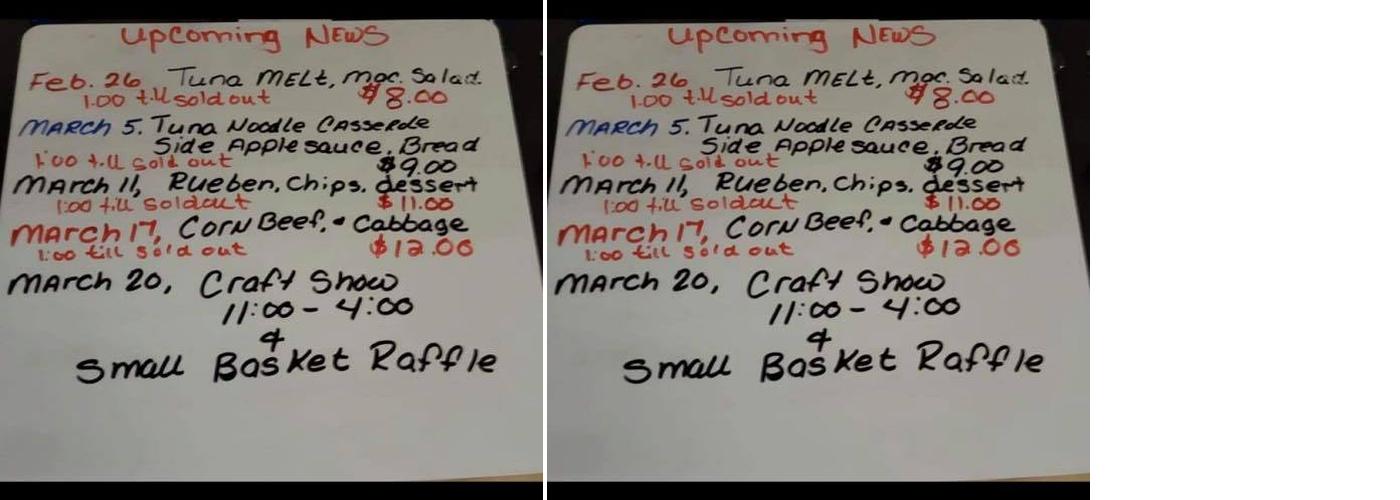 Upcoming News
Feb. 26 Tuna Melt, Mac. Salad
1:00 till sold out $8.00
March 5. Tuna Noodle Casserole
Side Applesauce, Bread
1:00 till sold out $9.00
March 11, Rueben, Chips, dessert
1:00 till soldout $11.00
March 17, Corn Beef, & Cabbage
1:00 till sold out $12.00
March 20, Craft Show
11:00 - 4:00
&
Small Basket Raffle
Upcoming News
Feb. 26 Tuna Melt, Mac. Salad
1:00 till sold out $8.00
March 5. Tuna Noodle Casserole
Side Applesauce, Bread
1:00 till sold out $9.00
March 11, Rueben, Chips, dessert
1:00 till soldout $11.00
March 17, Corn Beef, & Cabbage
1:00 till sold out $12.00
March 20, Craft Show
11:00 - 4:00
&
Small Basket Raffle